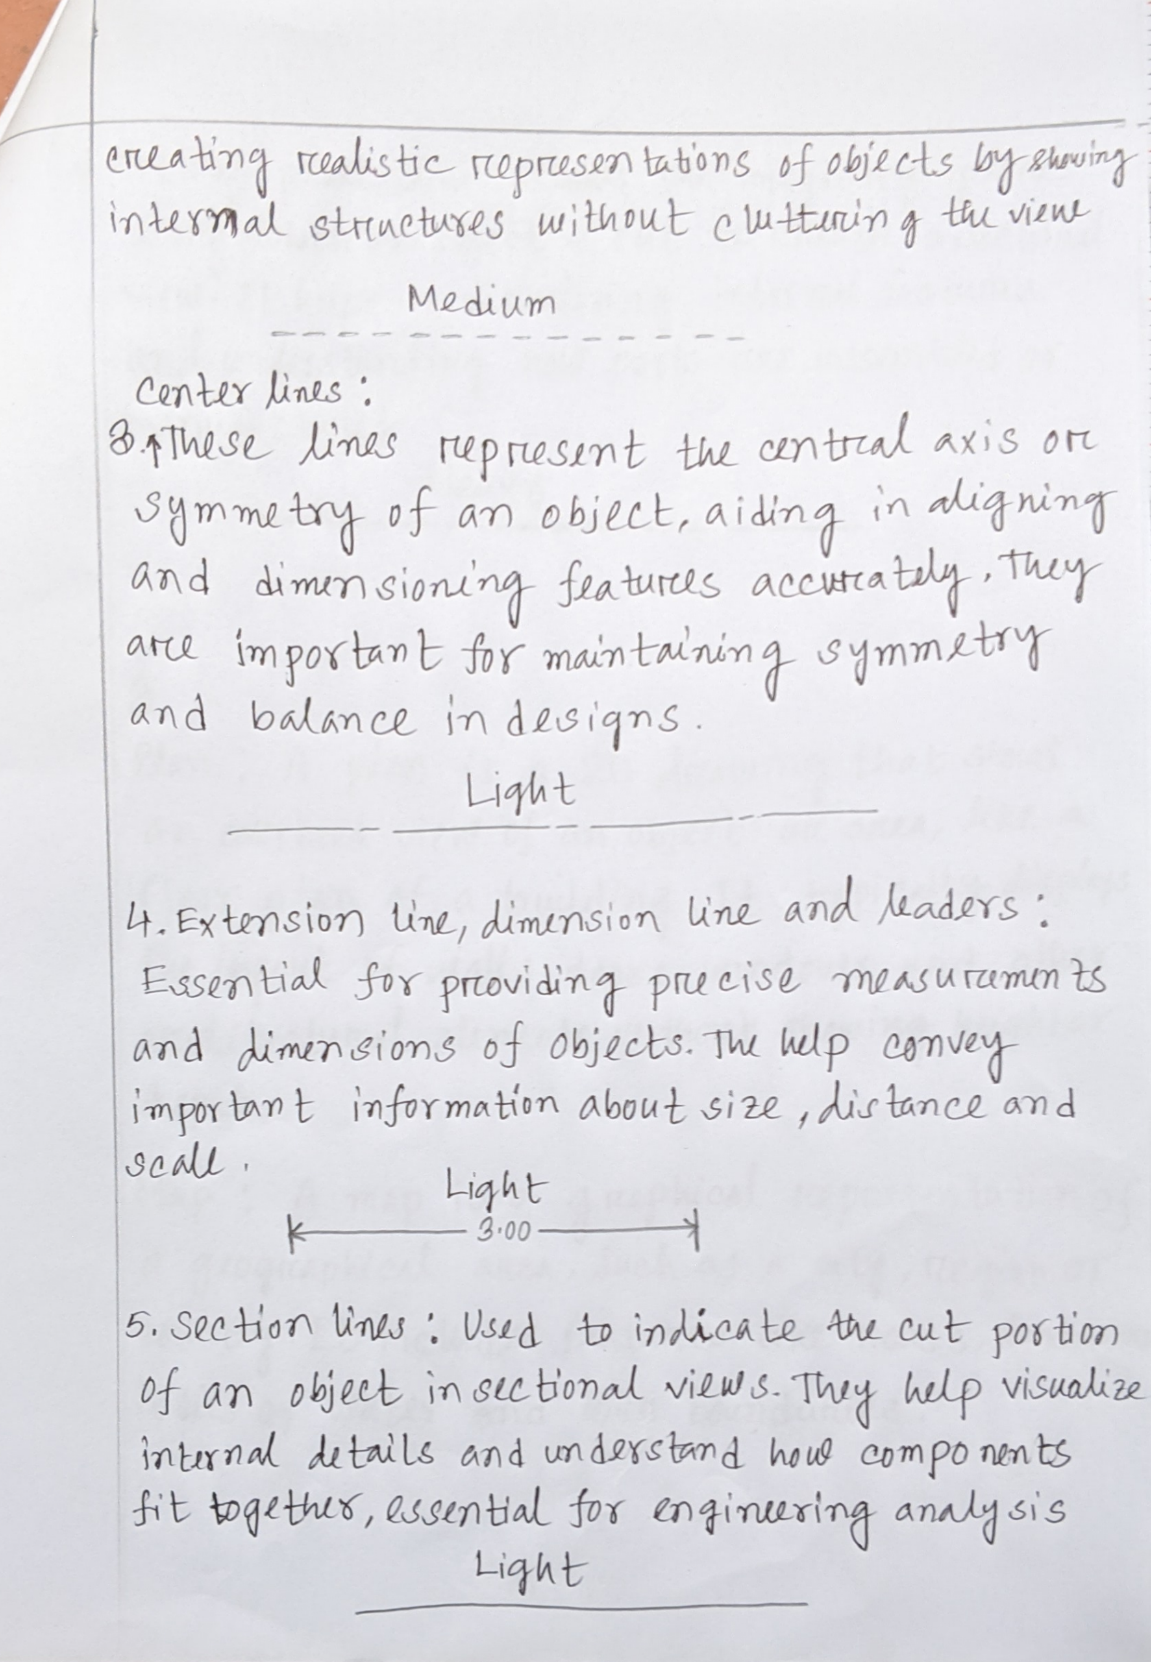 creating realistic representations of objects by showing
internal structures without cluttering the view
Medium
Center lines :
3. ↑ These lines represent the central axis or
symmetry of an object, aiding in aligning
and dimensioning features accurately. They
are important for maintaining symmetry
and balance in designs.
Light
4. Extension line, dimension line and leaders :
Essential for providing precise measurements
and dimensions of objects. The help convey
important information about size, distance and
scale.
Light
3.00
5. Section lines : Used to indicate the cut portion
of an object in sectional views. They help visualize
internal details and understand how components
fit together, essential for engineering analysis
Light